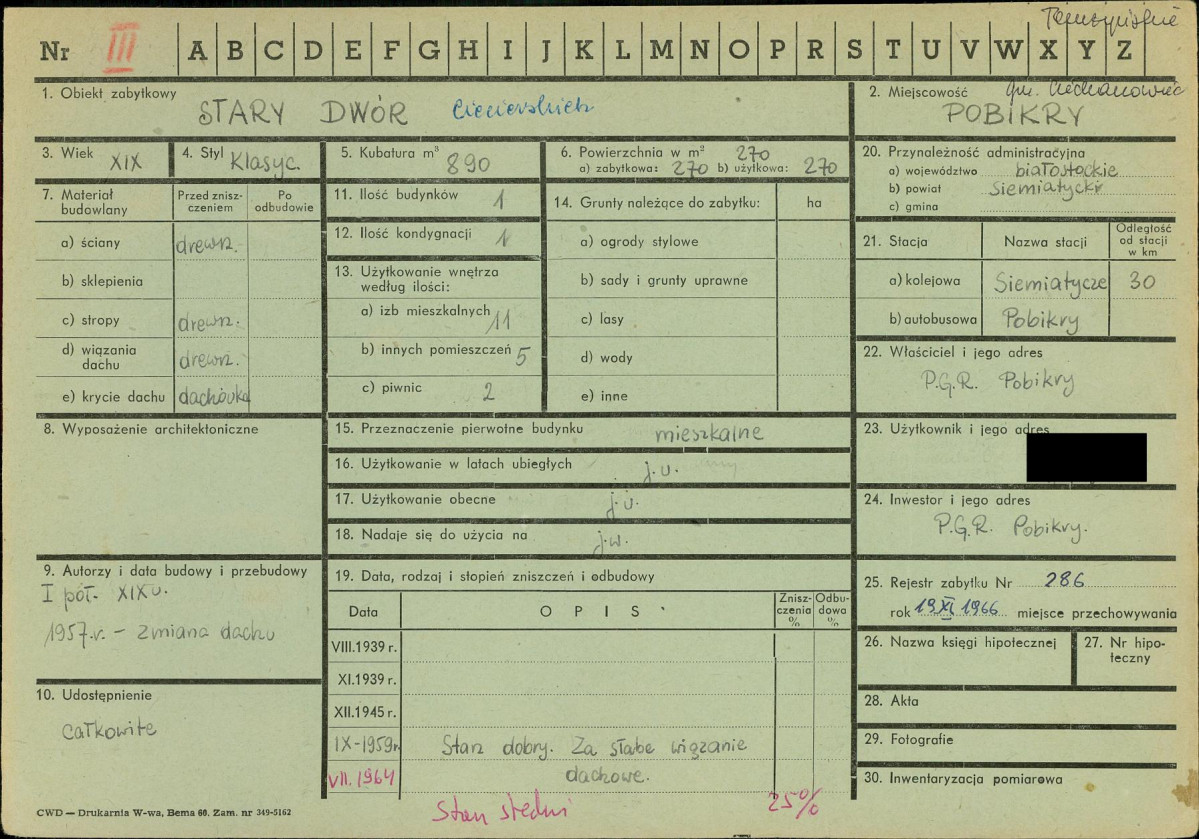 Nr III A B C D E F G H I J K L M N O P R S T U V W X Y Z
1. Obiekt zabytkowy
STARY DWÓR Ciecierskich
2. Miejscowość gm. Ciechanowiec
POBIKRY
3. Wiek XIX
4. Styl Klasyc.
5. Kubatura m³ 890
6. Powierzchnia w m² 270
a) zabytkowa: 270 b) użytkowa: 270
7. Materiał budowlany
Przed zniszczeniem
Po odbudowie
a) ściany drewn.
b) sklepienia
c) stropy drewn.
d) wiązania dachu drewn.
e) krycie dachu dachówka
8. Wyposażenie architektoniczne
9. Autorzy i data budowy i przebudowy
I poł. XIX w.
1957.r. – zmiana dachu
10. Udostępnienie
całkowite
11. Ilość budynków 1
12. Ilość kondygnacji 1
13. Użytkowanie wnętrza
według ilości:
a) izb mieszkalnych 11
b) innych pomieszczeń 5
c) piwnic 2
14. Grunty należące do zabytku: ha
a) ogrody stylowe
b) sady i grunty uprawne
c) lasy
d) wody
e) inne
15. Przeznaczenie pierwotne budynku mieszkalne
16. Użytkowanie w latach ubiegłych j.w.
17. Użytkowanie obecne j.w.
18. Nadaje się do użycia na j.w.
19. Data, rodzaj i stopień zniszczeń i odbudowy
Data
O P I S
Zniszczenia %
Odbudowa %
VIII.1939 r.
XI.1939 r.
XII.1945 r.
IX-1959r. Stan dobry. Za słabe wiązanie
dachowe.
VII.1964
Stan średni 25%
20. Przynależność administracyjna
a) województwo białostockie
b) powiat Siemiatycki
c) gmina
21. Stacja
Nazwa stacji
Odległość
od stacji
w km
a) kolejowa Siemiatycze 30
b) autobusowa Pobikry
22. Właściciel i jego adres
P.G.R. Pobikry
23. Użytkownik i jego adres
24. Inwestor i jego adres
P.G.R. Pobikry.
25. Rejestr zabytku Nr 286
rok 19 XI 1966 miejsce przechowywania
26. Nazwa księgi hipotecznej
27. Nr hipoteczny
28. Akta
29. Fotografie
30. Inwentaryzacja pomiarowa
CWD — Drukarnia W-wa, Bema 60. Zam. nr 349-5162